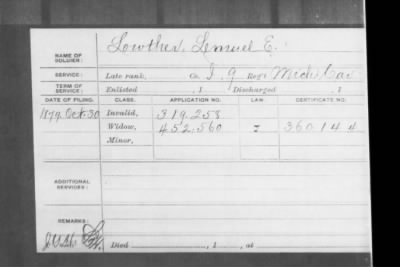 NAME OF SOLDIER: Lowther, Lemuel E.
SERVICE: Late rank, Co. I, 9 Reg't Mich. Cav
TERM OF SERVICE: Enlisted , 1 Discharged , 1
DATE OF FILING. CLASS. APPLICATION NO. LAW. CERTIFICATE NO.
1879. Oct. 30 Invalid, 319.258
Widow, 452.560 360144
Minor,
ADDITIONAL SERVICES:
REMARKS:
Died , 1 , at